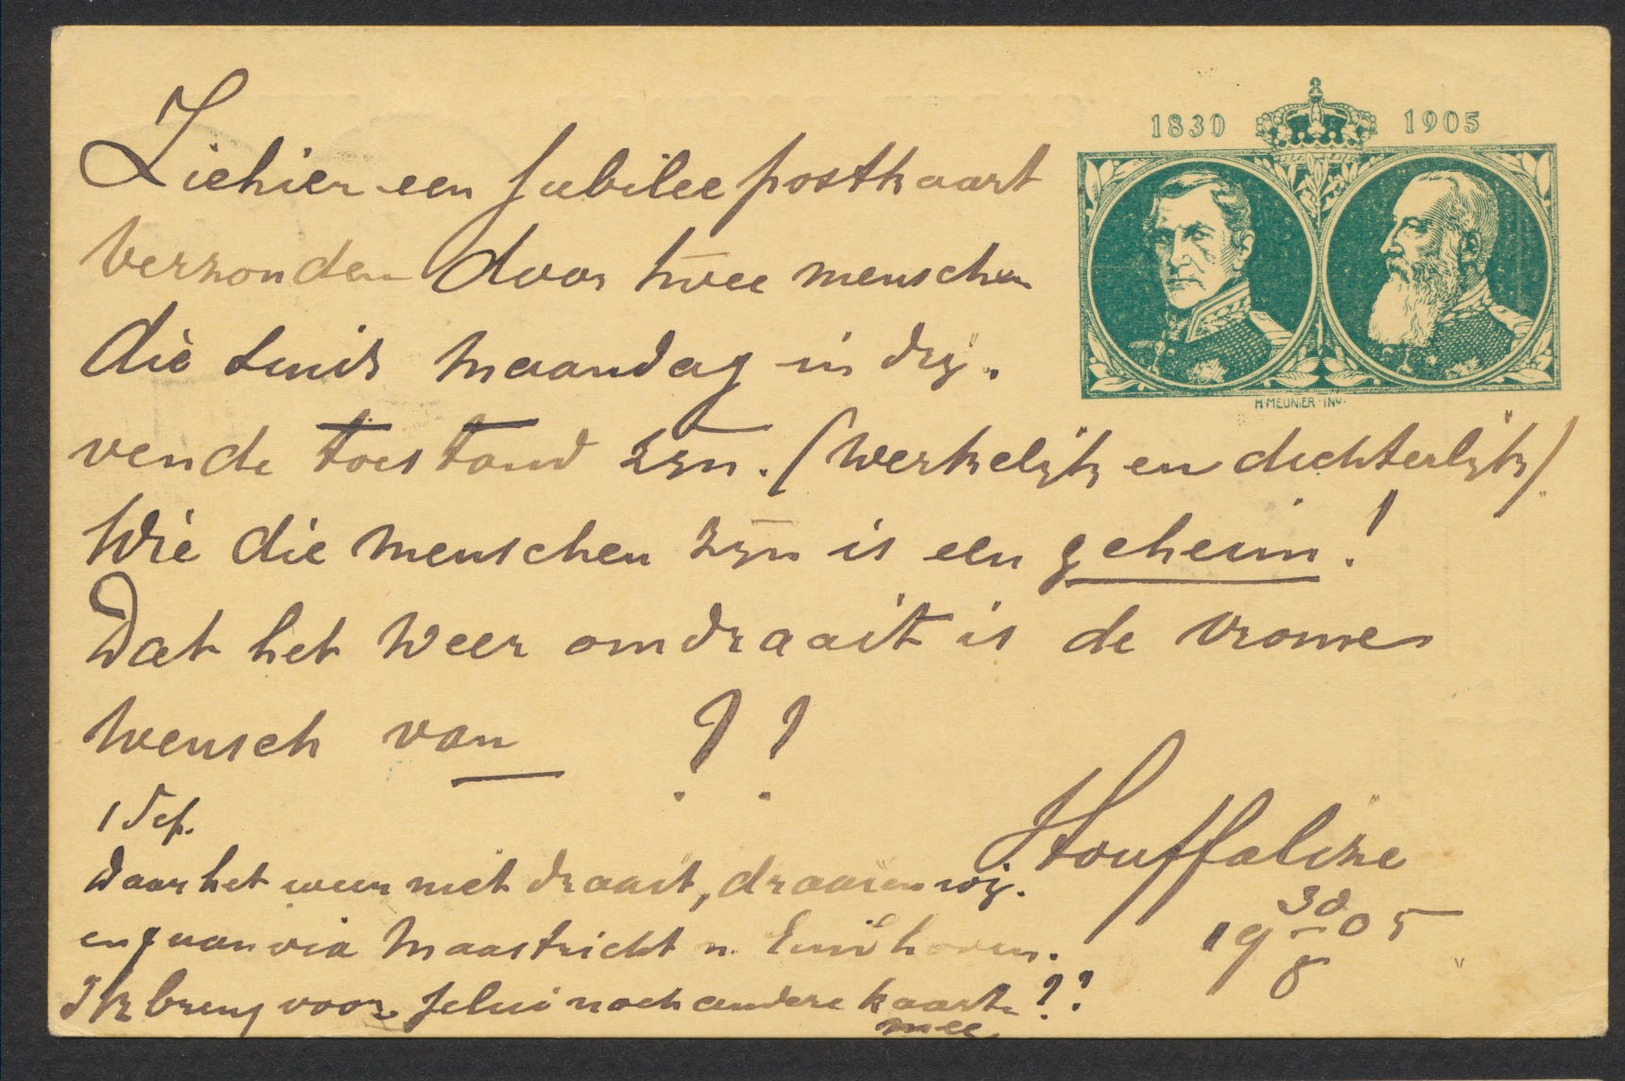 1830 1905
H. MEUNIER. INV.
Ziehier een Jubilee postkaart
verzonden door twee menschen
die sinds Maandag in drij.
vende toestand zijn. (Werkelijk en dichterlijk)
Wie die menschen zijn is een geheim!
Dat het weer omdraait is de vrome
wensch van ??
Houffalize
19 30/8 05
1 Sep.
Daar het weer niet draait, draaien wij.
en gaan via Maastricht n. Eindhoven.
Ik breng voor noch andere kaarten ??
mee.